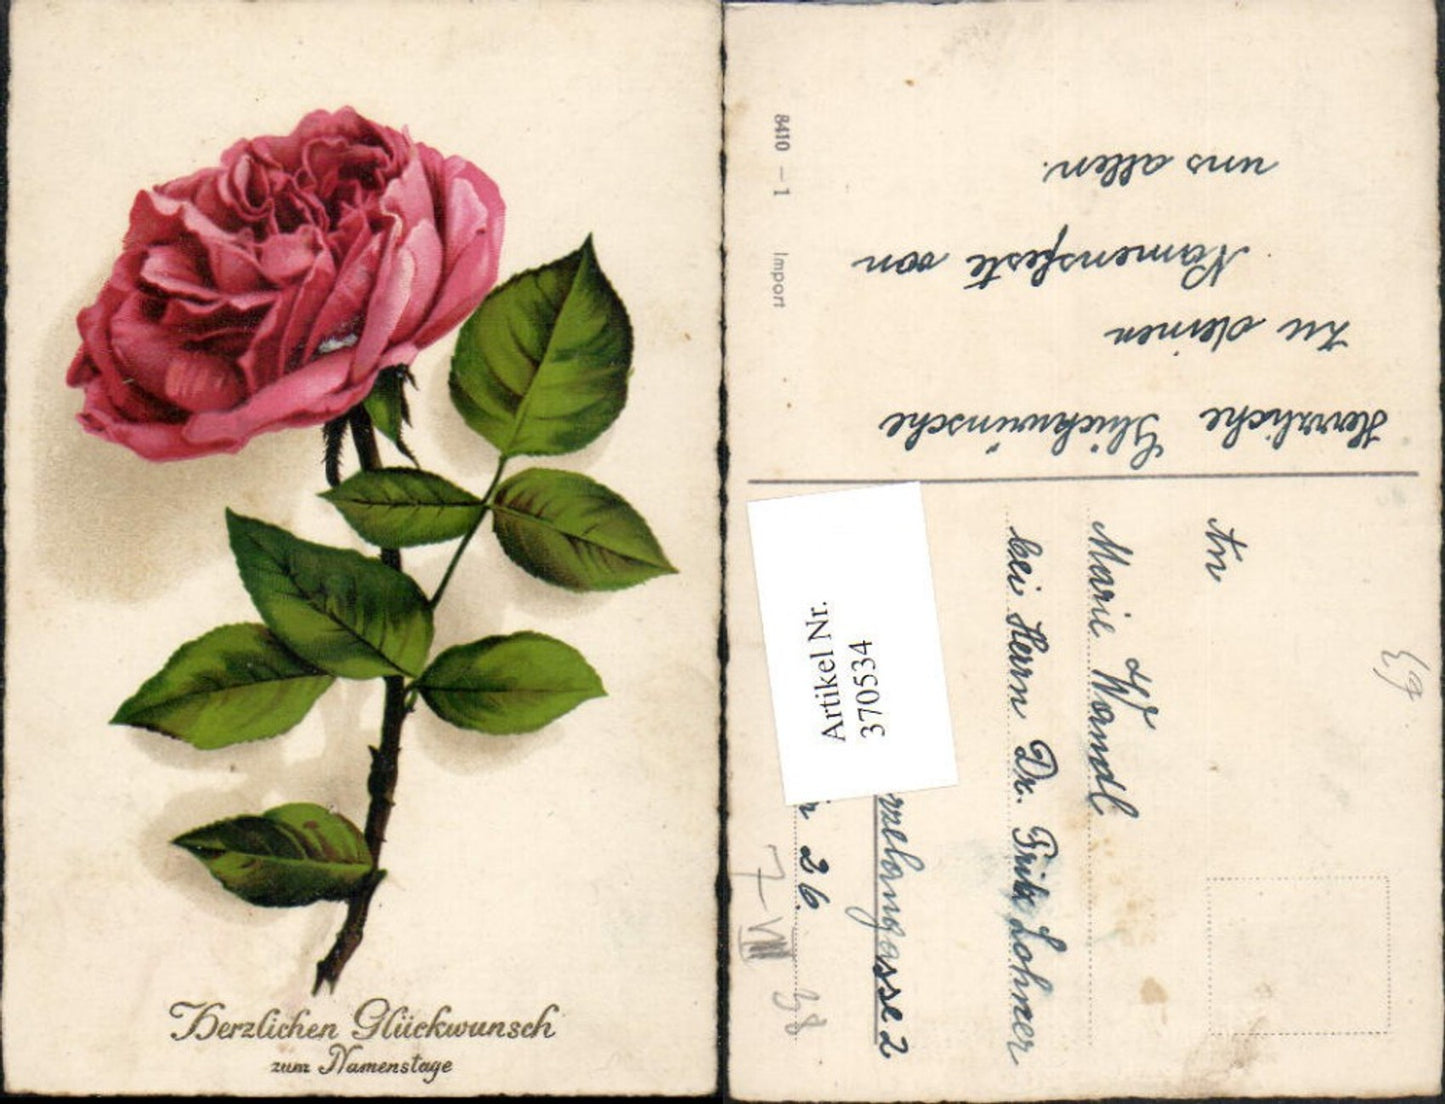 Herzlichen Glückwunsch
zum Namenstage
8410 – 1 Import
Herrzliche Glückwünsche
zu deinen
Namensfeste von
uns allen.
An
Marie Wandl
bei Herrn Dr. Fritz Lohner
rzelangasse 2
26.
7-VIII 38
Artikel Nr.
370534